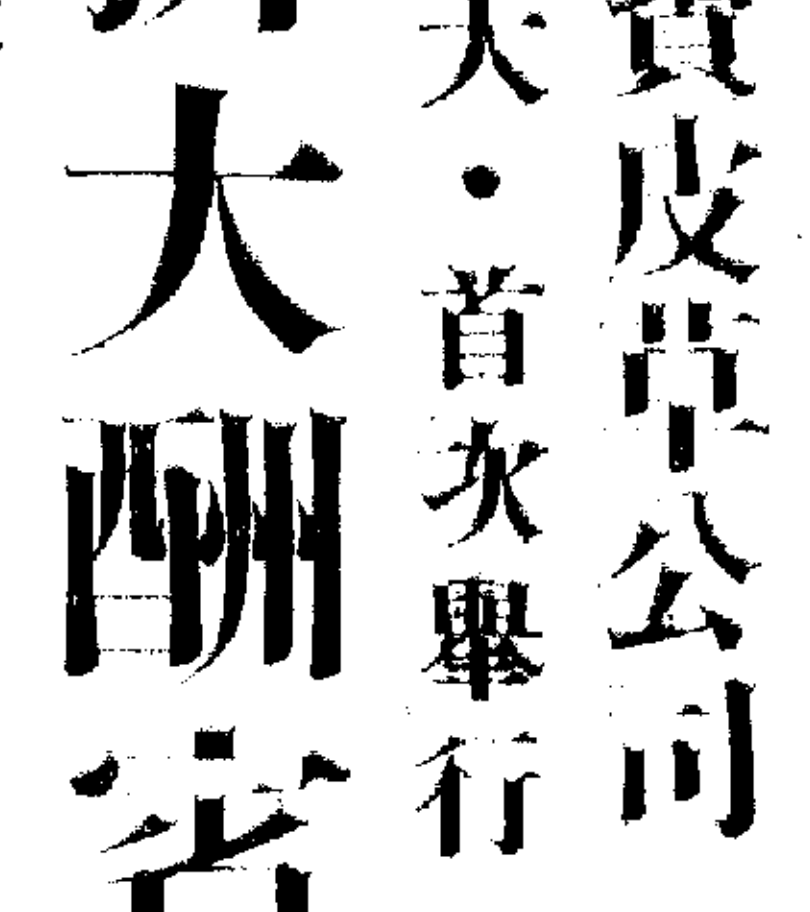 皮革公司
大・首次舉行
大酬賓